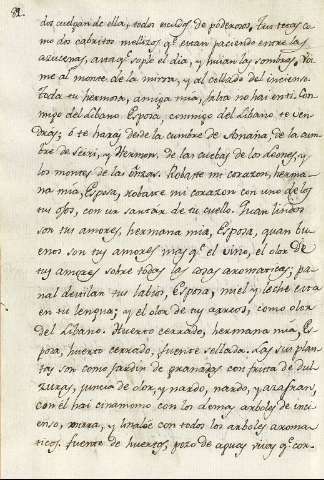 82.
dos cuelgan de ella, todos escudos de poderosos. Tus tetas co
mo dos cabritos mellizos q.e estan paciendo entre las
azucenas, antes q.e sople el dia, y huian las sombras. Voi
me al monte de la mirra, y al collado del inciensо.
Toda tu hermosa, amiga mia, falta no hai en ti. Con
migo del Libano Esposa, conmigo del Libano te ven
dras; ô te haràs desde la cumbre de Amana, de la cum
bre de Seiri, y Hermon, de las cuebas de los leones, y
los montes de las onzas. Robaste mi corazon, herma
na mia, Esposa, robaste mi corazon con uno de los
tus ojos, con un sartar de tu cuello. Quan lindos
son tus amores, hermana mia, Esposa, quan bu
enos son tus amores mas q.e el vino, el olor de
tus amores sobre todas las cosas aromaticas;
panal destilan tus labios, Esposa, miel y leche està
en tu lengua; y el olor de tus arreos, como olor
del Libano. Huerto cerrado, hermana mia, Es
posa, huerto cerrado, fuente sellada. Las sus plan
tas son como jardin de granados con fruta de dul
zuras, juncia de olor, y nardo, nardo, y azafran,
con el hai cinamomo con los demas arboles de inci
enso, mirra, y linaloe con todos los arboles aroma
ticos. fuente de huertos; pozo de aguas vivas q.e cor-